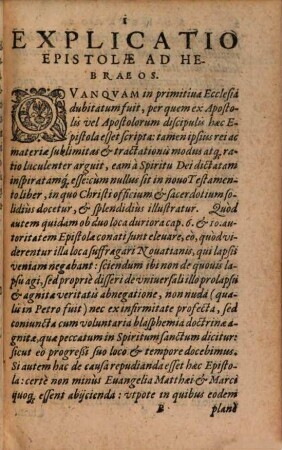 1
EXPLICATIO
EPISTOLÆ AD HE-
BRAEOS.
QVANQVAM in primitiua Ecclesia
dubitatum fuit, per quem ex Aposto-
lis vel Apostolorum discipulis hæc E-
pistola esset scripta: tamen ipsius rei ac
materiæ sublimitas & tractationis modus atq́; ra-
tio luculenter arguit, eam à Spiritu Dei dictatam
inspiratamq́; esse: cum nullus sit in nouo Testamen-
to liber, in quo Christi officium & sacerdotium so-
lidius docetur, & splendidius illustratur. Quod
autem quidam ob duo loca duriora cap. 6. & 10. au-
toritatem Epistolæ conati sunt eleuare, eò, quòd vi-
derentur illa loca suffragari Nouatianis, qui lapsis
veniam negabant: sciendum ibi non de quouis la-
psu agi, sed propriè disseri de vniuersali illo prolapsu
& agnitæ veritatis abnegatione, non nuda (qua-
lis in Petro fuit) nec ex infirmitate profecta, sed
coniuncta cum voluntaria blasphemia doctrinæ a-
gnitæ, quæ peccatum in Spiritum sanctum dicitur:
sicut eo progressi suo loco & tempore docebimus.
Si autem hac de causa repudianda esset hæc Episto-
la: certè non minùs Euangelia Matthæi & Marci
quoq́; essent abijcienda: vtpote in quibus eodem
B planè